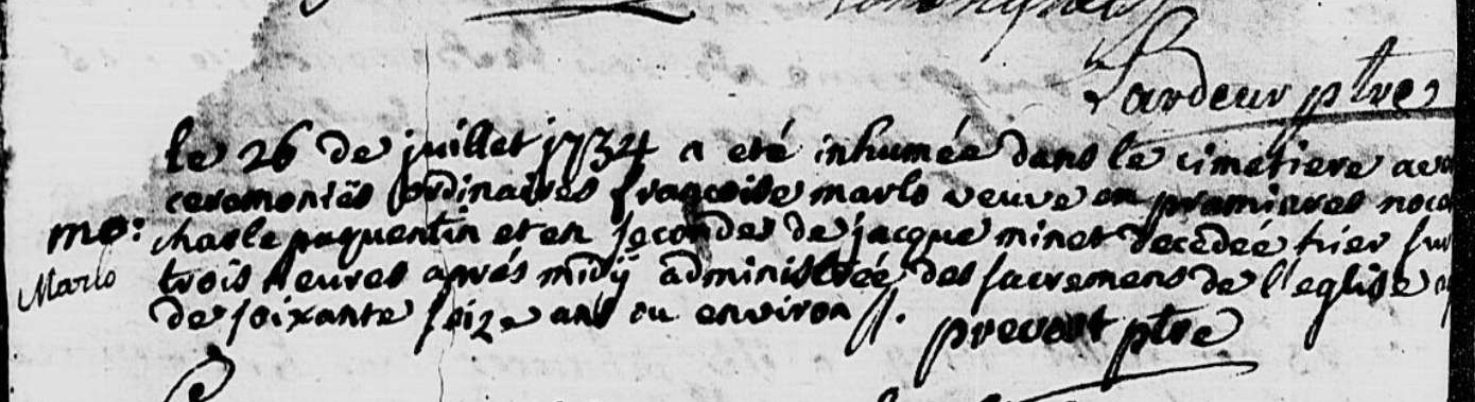 Lardeur ptre
le 26 de juillet 1734 a eté inhumée dans le cimetiere avec
ceremoniës ordinaires françoise marlo veuve en premieres noces
mo: charle paquentin et en secondes de jacque minet decedeé hier sur
Marlo trois heures aprés midÿ administréé des sacremens de l'eglise
de soixante seize ans ou environ //. prevost ptre